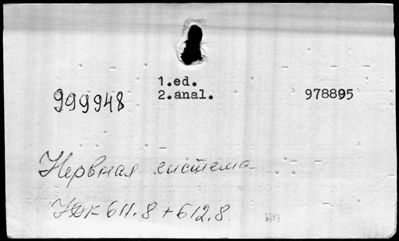 1.ed.
999948 2.anal. 978895
Нервная система
УДК 611.8 + 612.8